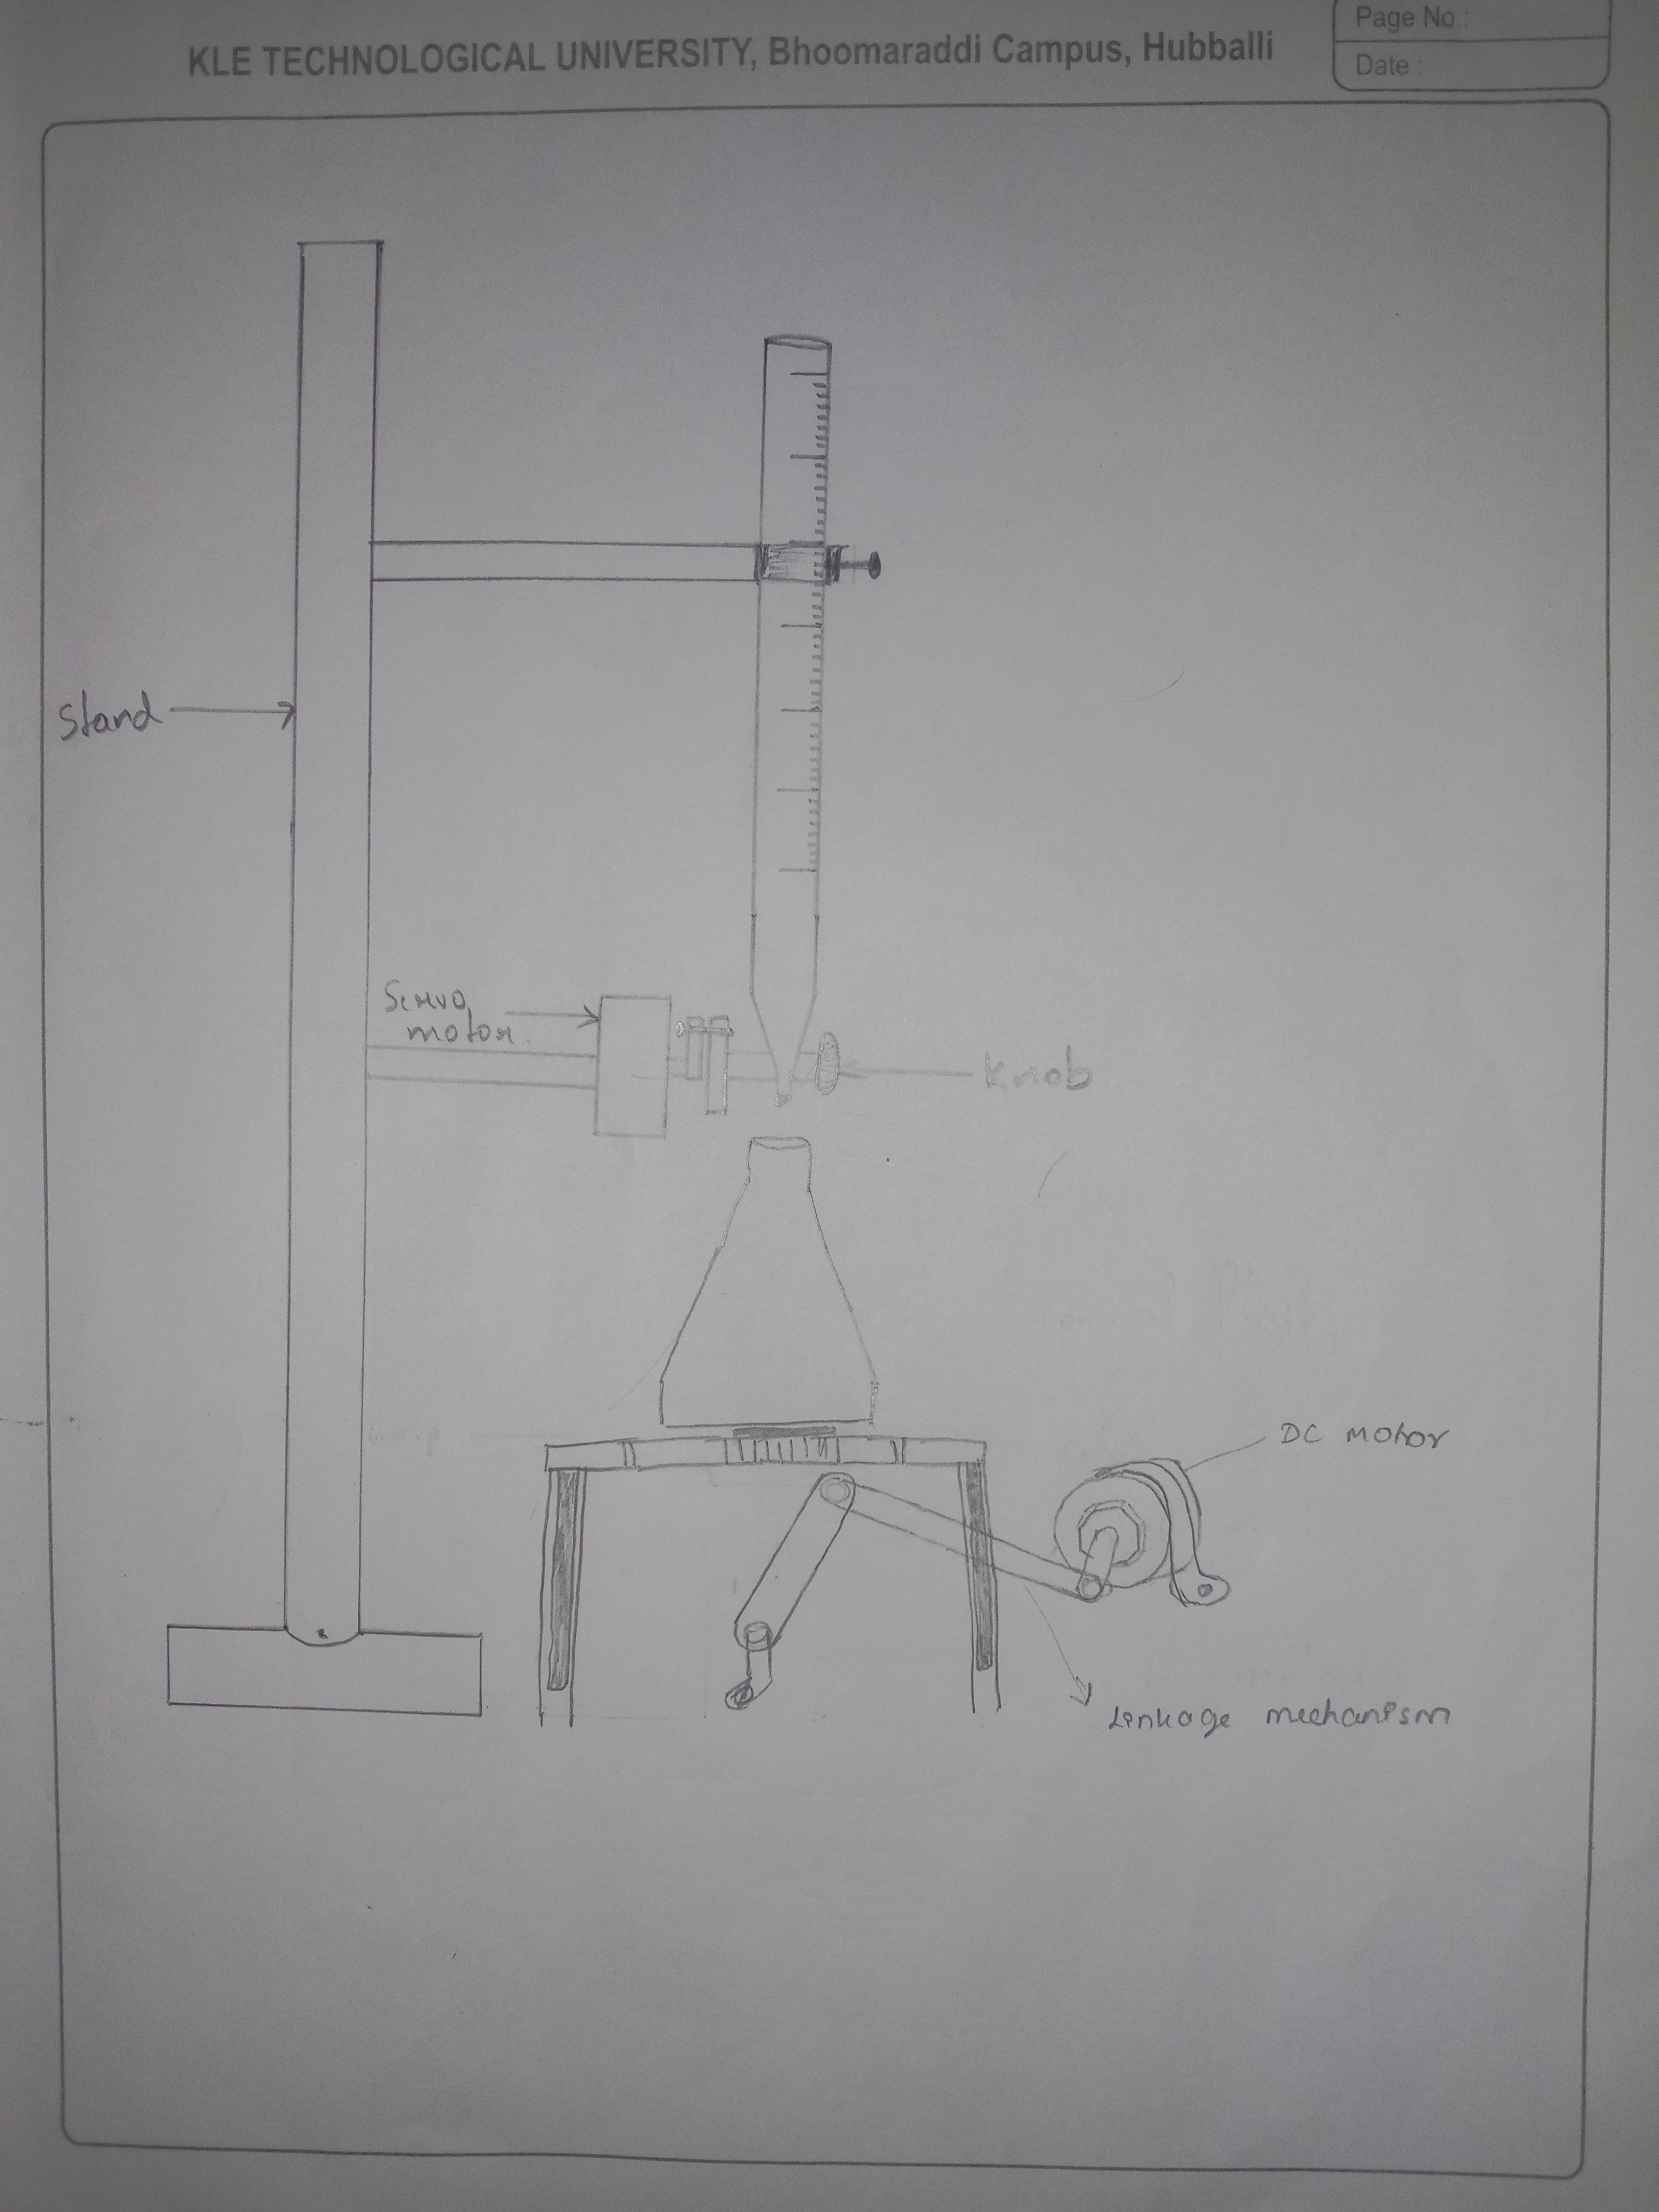 KLE TECHNOLOGICAL UNIVERSITY, Bhoomaraddi Campus, Hubballi
Page No.:
Date :
Stand
Servo
motor.
Knob
DC motor
Linkage mechanism